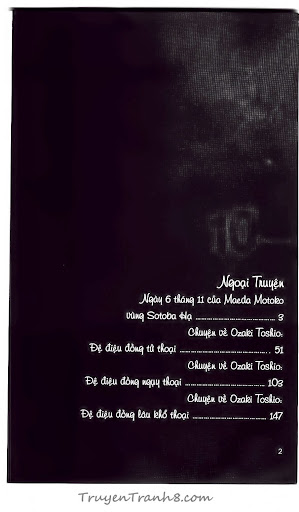 10
Ngoại Truyện
Ngày 6 tháng 11 của Maeda Motoko
vùng Sotoba Hạ ........................ 3
Chuyện về Ozaki Toshio:
Đệ điệu đồng tử thoại ........................ 51
Chuyện về Ozaki Toshio:
Đệ điệu đồng nguy thoại ........................ 103
Chuyện về Ozaki Toshio:
Đệ điệu đồng lâu khổ thoại ........................ 147
2
TruyenTranh8.com